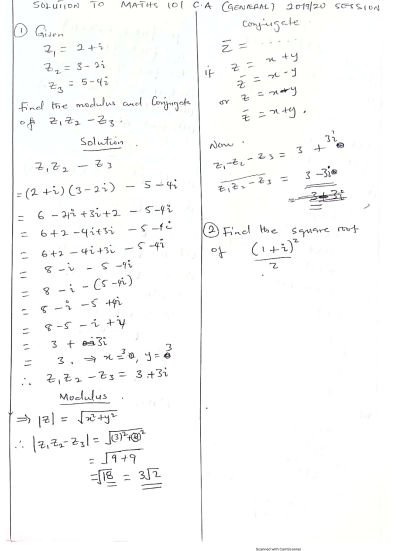 SOLUTION TO MATHS 101 C.A (GENERAL) 2019/20 SESSION
① Given
Z₁ = 2 + i
Z₂ = 3 - 2i
Z₃ = 5 - 4i
Find the modulus and Conjugate
of Z₁Z₂ - Z₃.
Solution
Z₁Z₂ - Z₃
= (2 + i)(3 - 2i) - 5 - 4i
= 6 - 4i + 3i + 2 - 5 - 4i
= 6 + 2 - 4i + 3i - 5 - 4i
= 6 + 2 - 4i + 3i - 5 - 4i
= 8 - i - 5 - 4i
= 8 - i - (5 - 4i)
= 8 - i - 5 + 4i
= 8 - 5 - i + 4i
= 3 + 3i
= 3. ⇒ x = 3, y = 3
∴ Z₁Z₂ - Z₃ = 3 + 3i
Modulus
⇒ |Z| = √x² + y²
∴ |Z₁Z₂ - Z₃| = √(3)² + (3)²
= √9 + 9
= √18 = 3√2
Conjugate
Z̄ = ......
if Z = x + y
Z̄ = x - y
or Z = x - y
Z̄ = x + y.
Now.
Z₁Z₂ - Z₃ = 3 + 3i
Z₁Z₂ - Z₃ = 3 - 3i
= 3 + 3i
② Find the square root
of (1 + i)²
2
Scanned with CamScanner